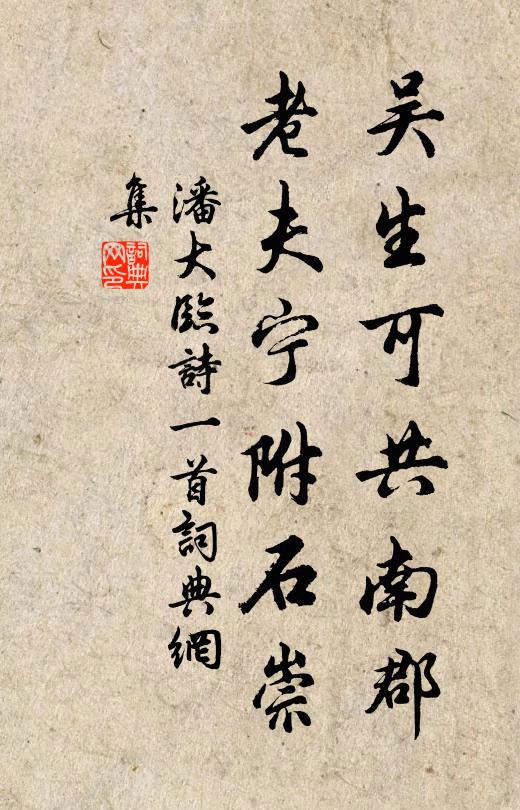 吴生可共南郡
老夫宁附石崇
潘大臨詩一首詞典網
集
詞典网印